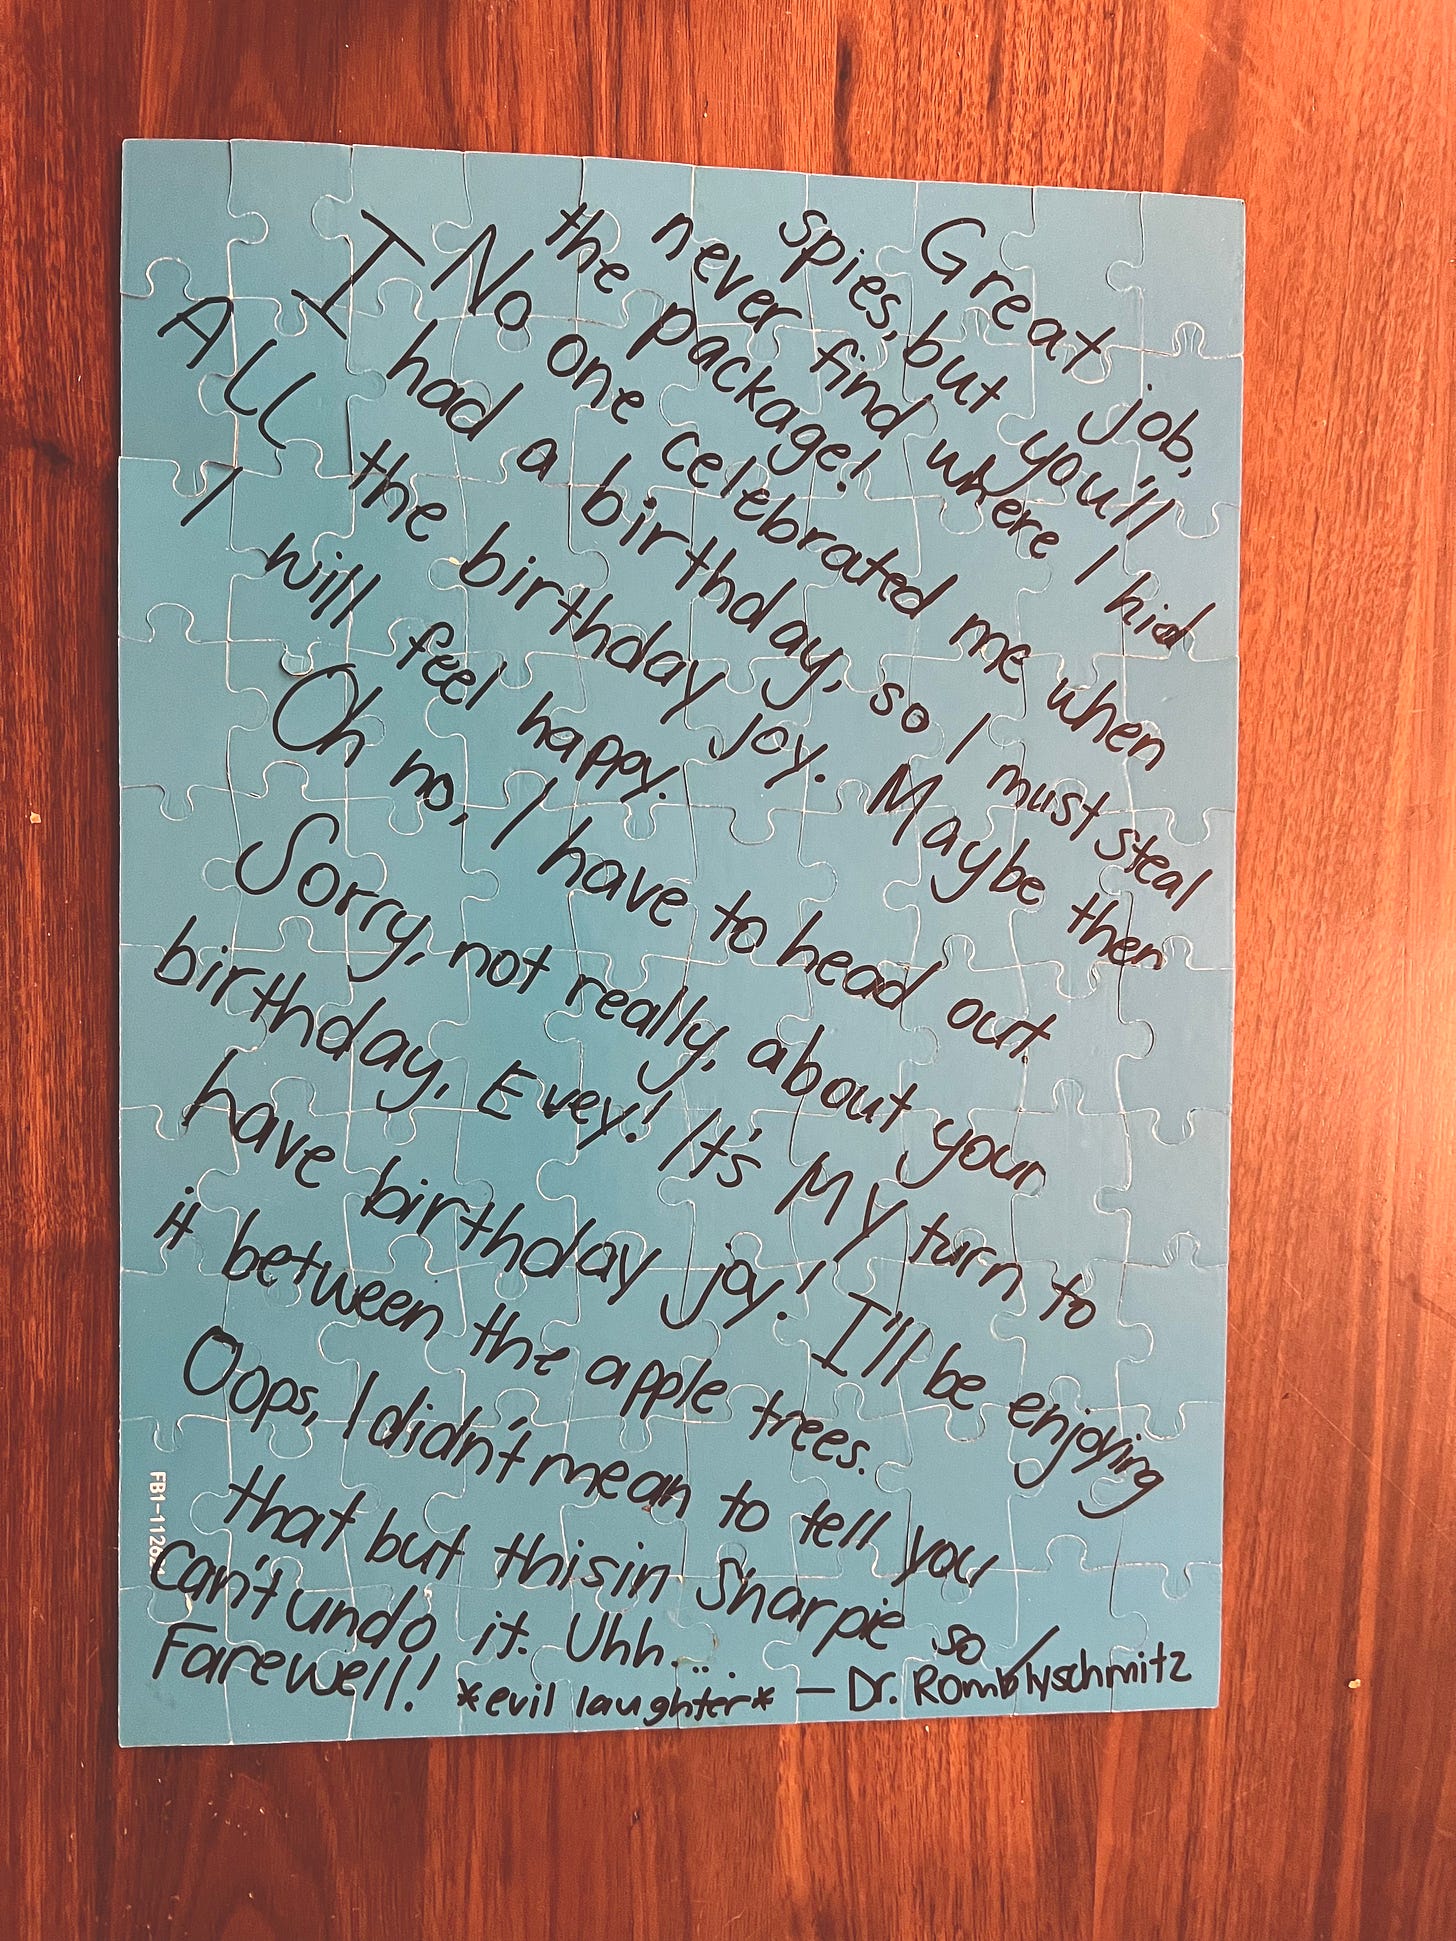 Great job,
spies, but you'll
never find where I hid
the package!
No one celebrated me when
I had a birthday, so I must steal
ALL the birthday joy. Maybe then
I will feel happy.
Oh no, I have to head out.
Sorry, not really, about your
birthday, Evey! It's MY turn to
have birthday joy! I'll be enjoying
it between the apple trees.
Oops, I didn't mean to tell you
that but this in Sharpie so I
can't undo it. Uhh....
Farewell! *evil laughter* — Dr. Romblyschmitz
FB1-1126